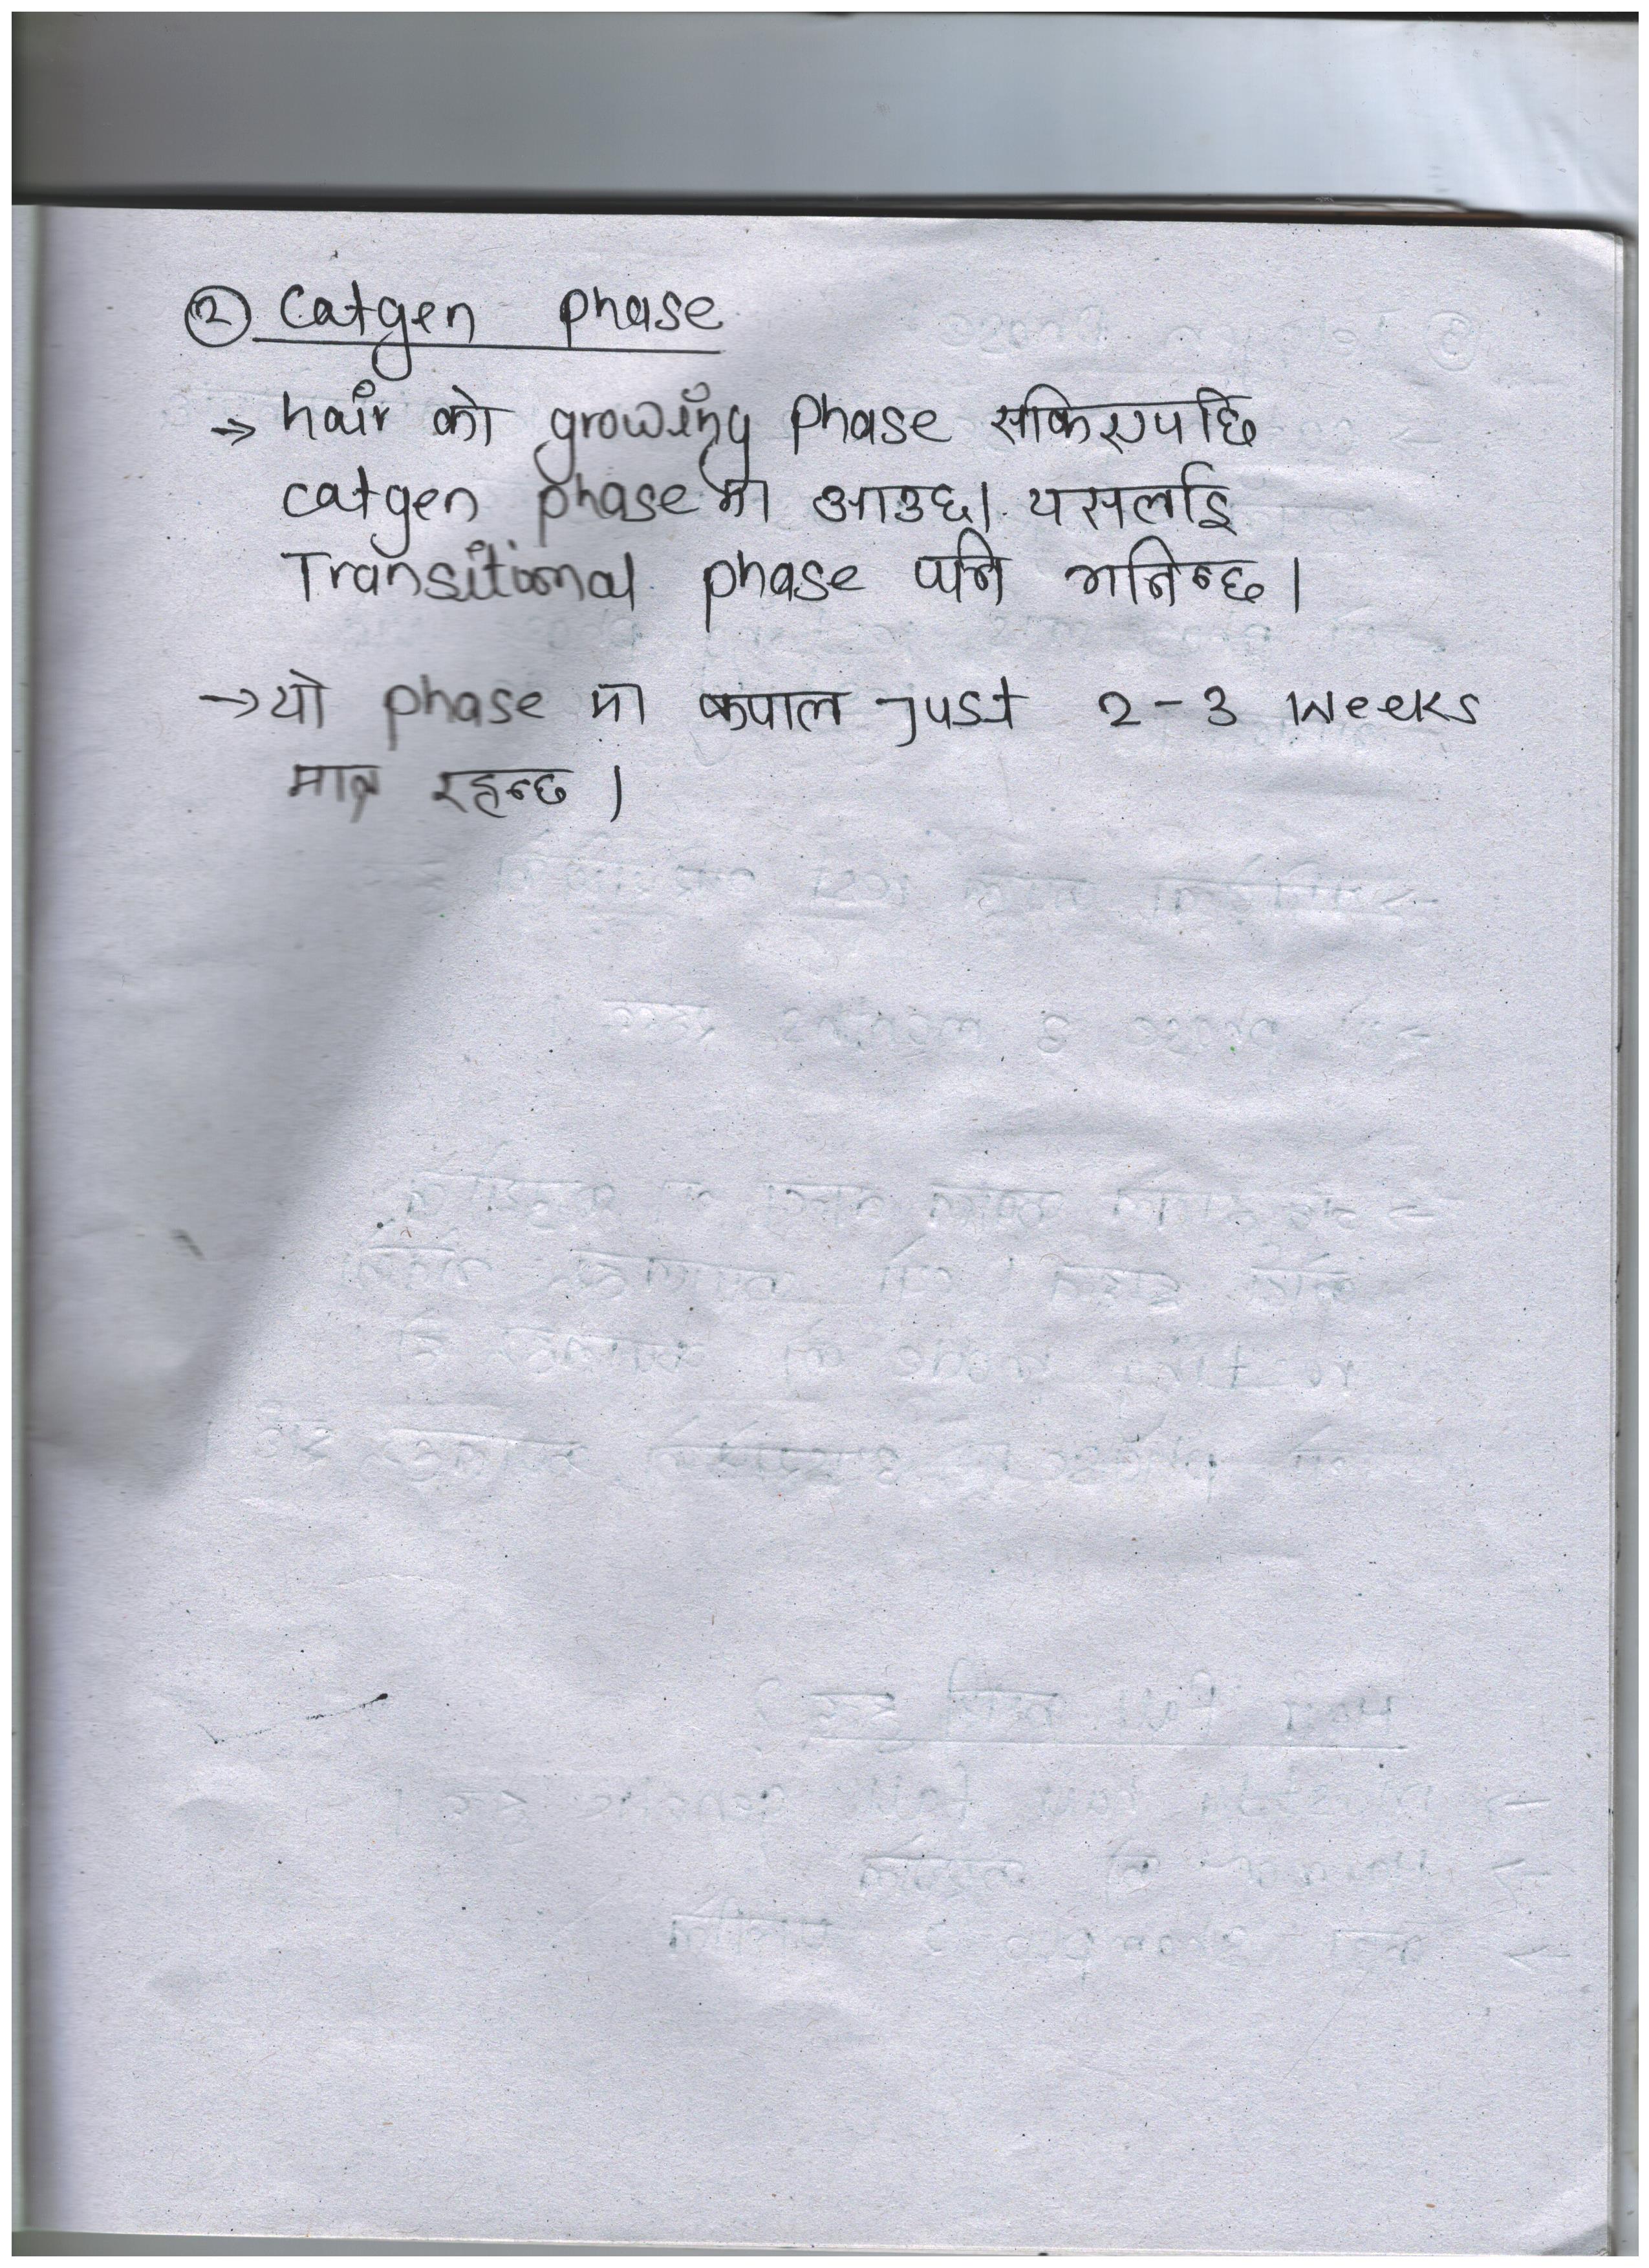 ② Catgen phase
→ hair को growing Phase सकिएपछि
catgen phase मा आउछ। यसलाई
Transitional phase पनि भनिन्छ।
→ यो phase मा कपाल just 2-3 weeks
मात्र रहन्छ।